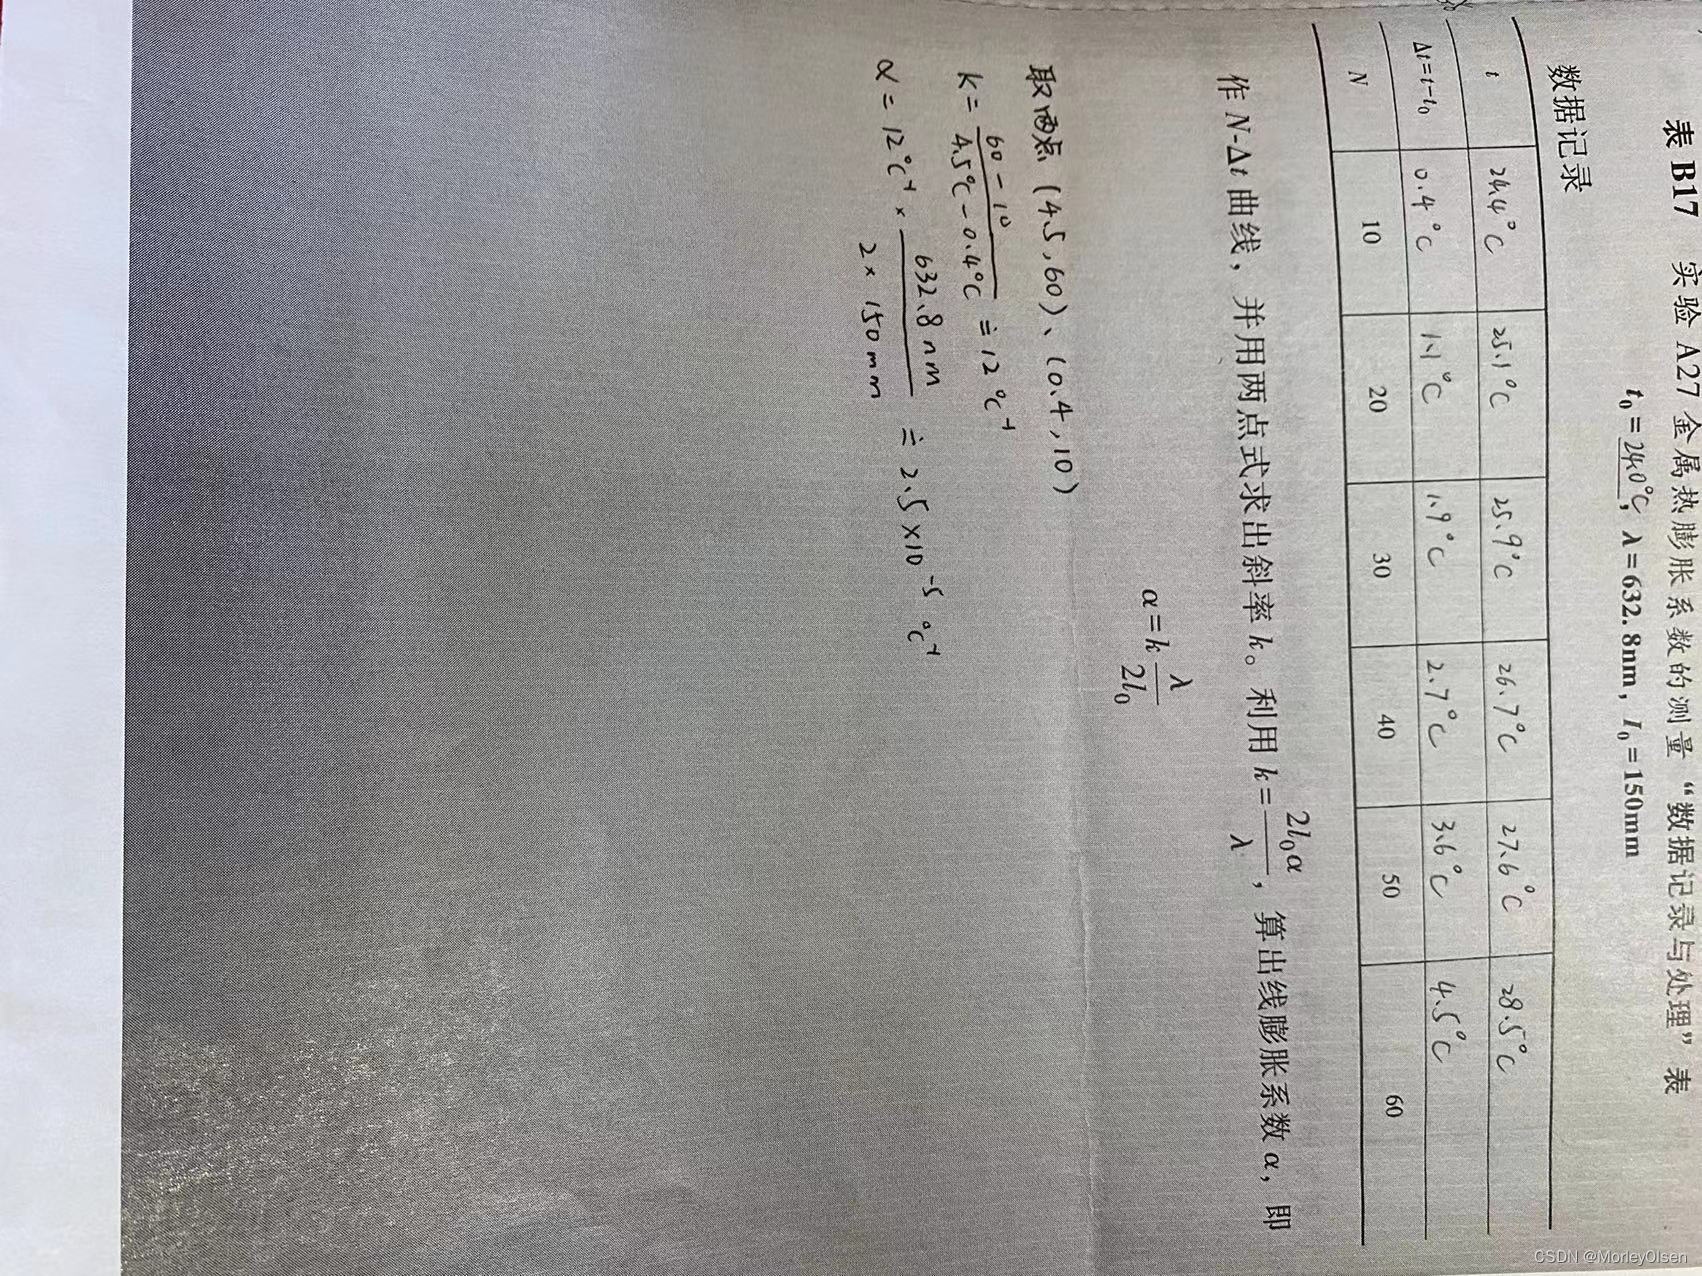 表 B17 实验 A27 金属热膨胀系数的测量“数据记录与处理”表
t₀=24.0℃, λ=632.8nm, l₀=150mm
数据记录
t 24.4℃ 25.1℃ 25.9℃ 26.7℃ 27.6℃ 28.5℃
Δt=t-t₀ 0.4℃ 1.1℃ 1.9℃ 2.7℃ 3.6℃ 4.5℃
N 10 20 30 40 50 60
作 N-Δt 曲线，并用两点式求出斜率 k。利用 k=2l₀α/λ，算出线膨胀系数 α，即
α=k λ/2l₀
取两点 (4.5,60)、(0.4,10)
K=(60-10)/(4.5℃-0.4℃)≐12℃⁻¹
α=12℃⁻¹×632.8nm/(2×150mm)≐2.5×10⁻⁵℃⁻¹
CSDN @MorleyOlsen